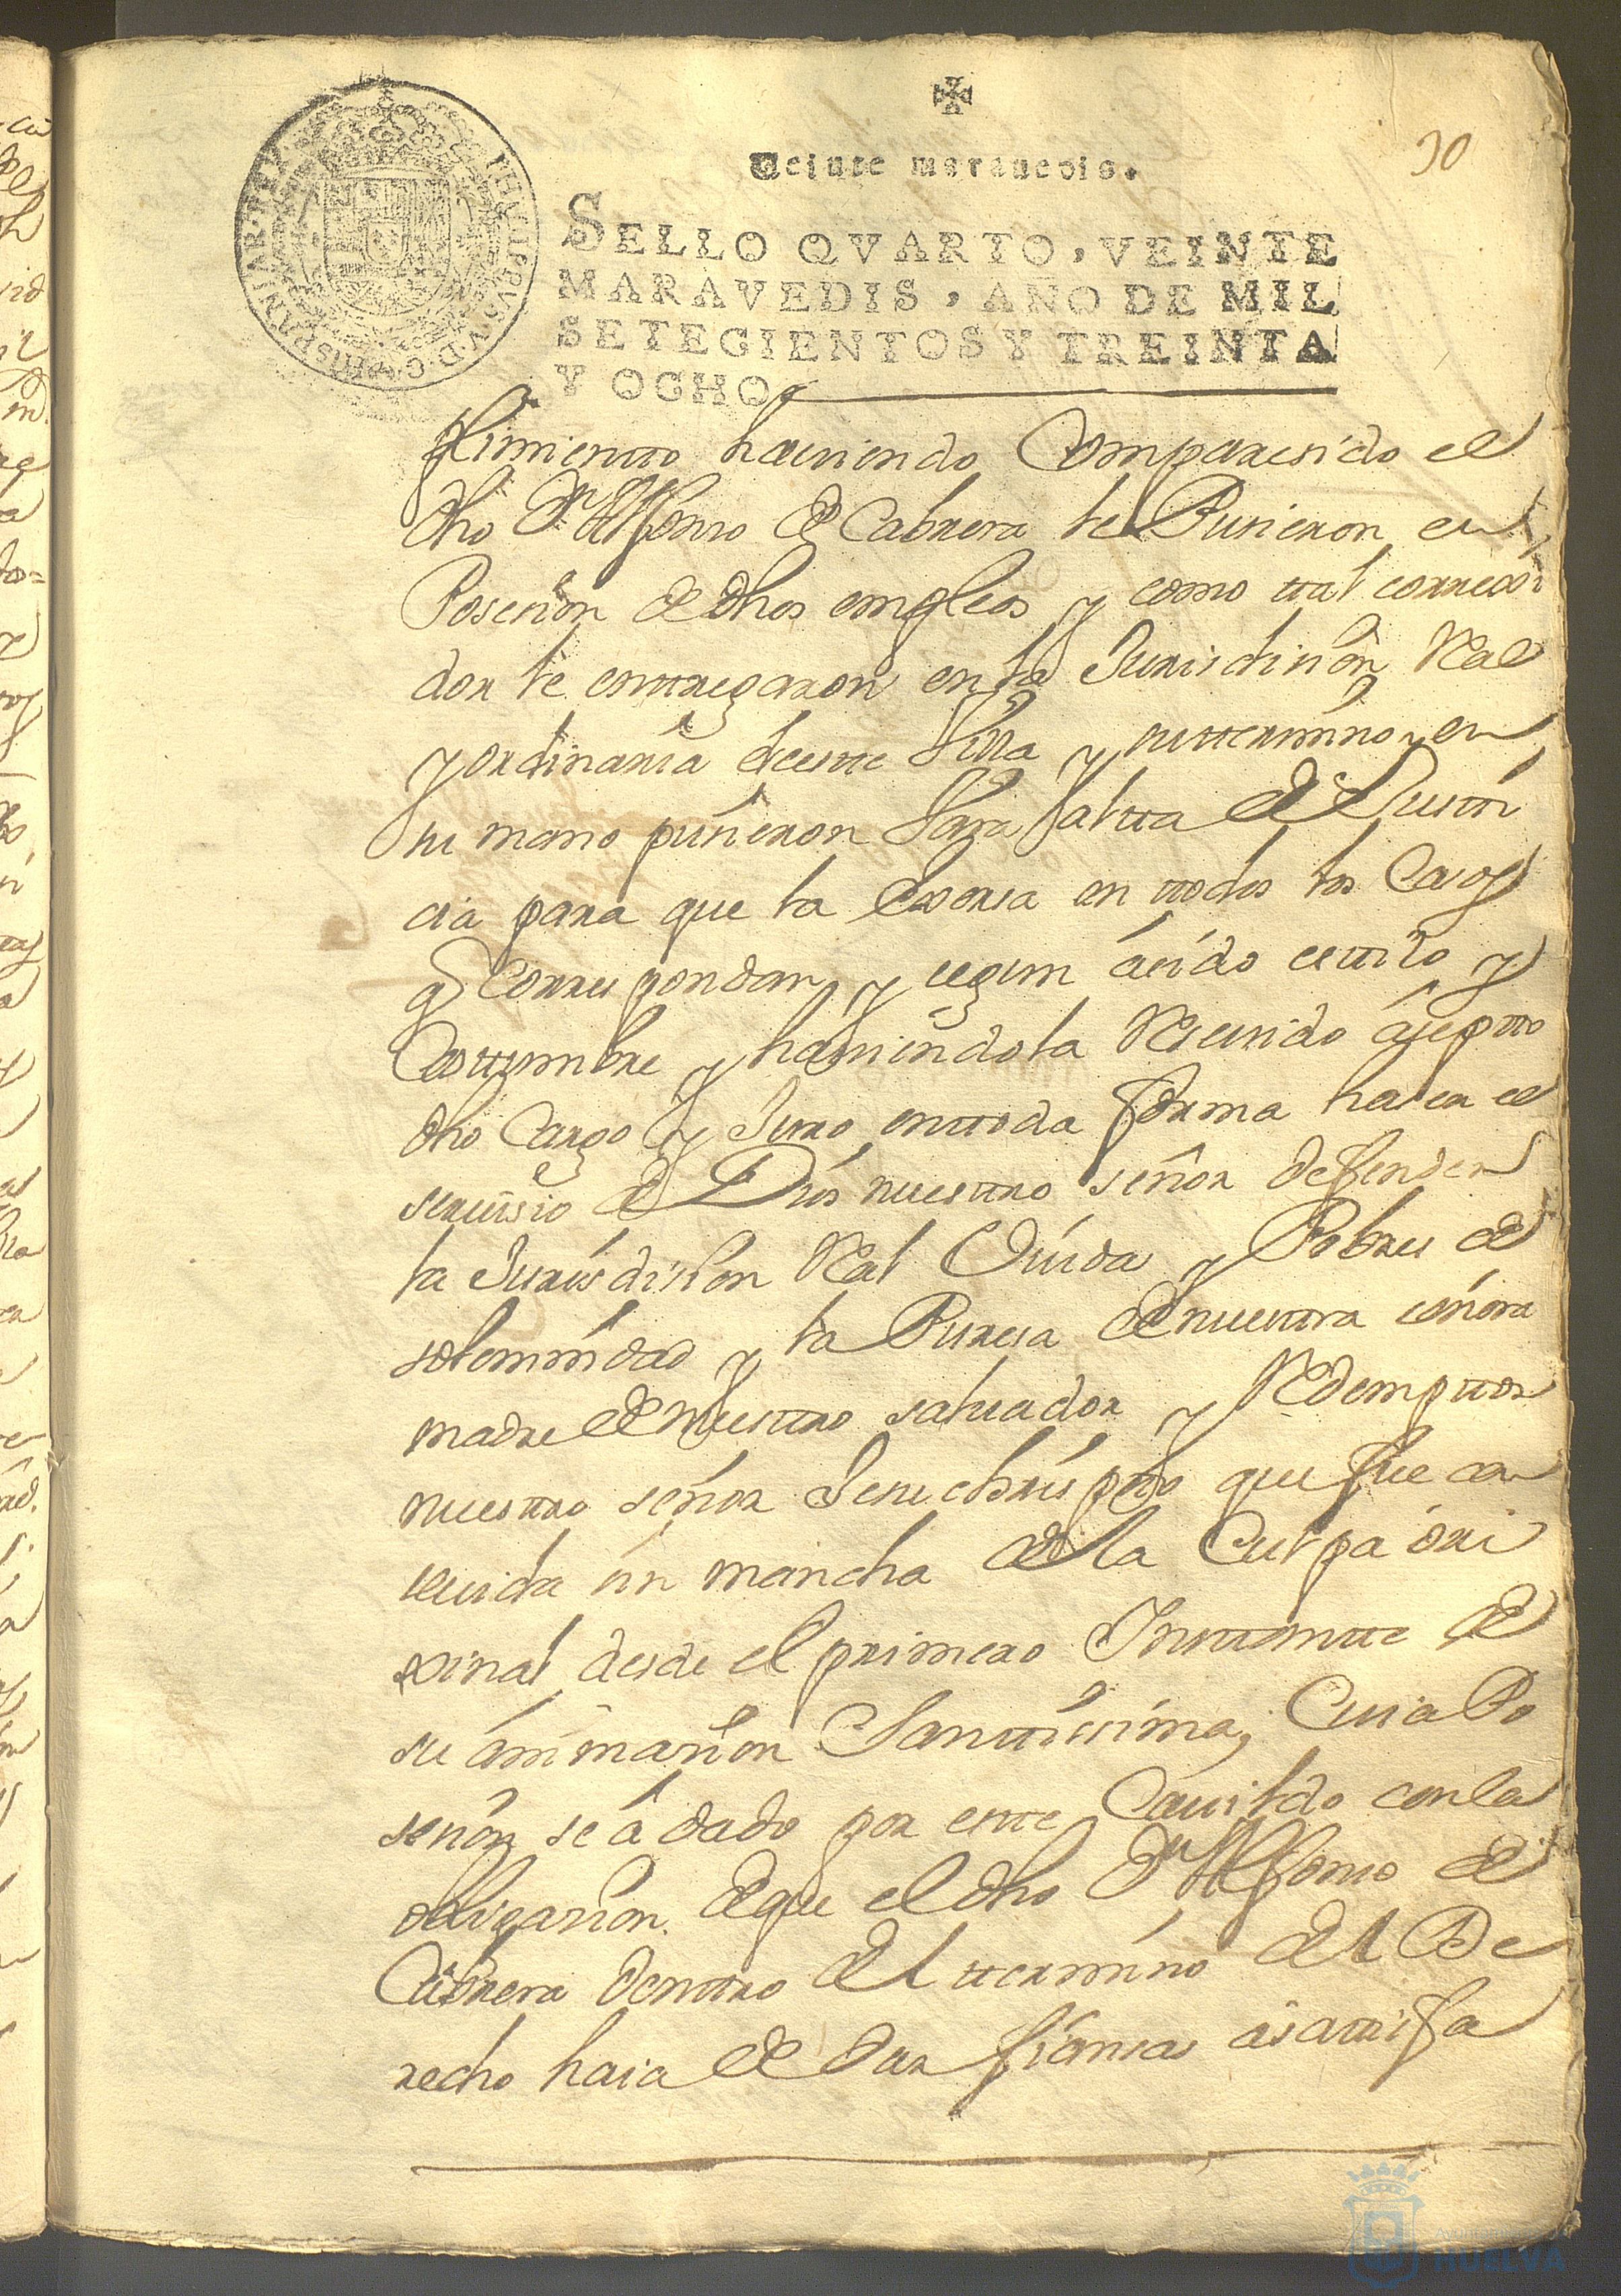 30
Veinte maravedis.
SELLO QVARTO, VEINTE
MARAVEDIS, AÑO DE MIL
SETECIENTOS Y TREINTA
Y OCHO.
PHILIPPVS·V·D·G· HISPANIAR·REX
plimientto haviendo Comparesido el
dho Dn Alfonso de Cabrera le Pusieron en
Posesion de dhos empleos y como ttal correxi
dor le enttregaron en la Jurisdision Real
y ordinaria de estte Villa y su ttermino en
su mano pusieron Vara altta de Justti
cia para que la exersa en ttodos los Casos
q Correspondan y segun á sido esttilo y
Costtumbre y haviendola Resevido ásepto
dho Cargo y Juro en ttoda forma haser el
servisio de Dios nuesttro señor defender
la Jurisdision Real Viuda y Pobres de
solemnidad y la Puresa de nuesttra señora
madre de Nuesttro salvador y Redempttor
nuesttro señor Jesuchristto que fue con
sevida sin mancha de la Culpa óri
xinal desde el primero Insttantte de
su ánimasion Santtissima, Cuia Po
sesion se á dado por estte Cavildo con la
obligasion de que el dho Dn Alfonso de
Cabrera denttro del ttermino del De
recho haia de dar fiansas á sattisfa
Ayuntamiento de
HUELVA